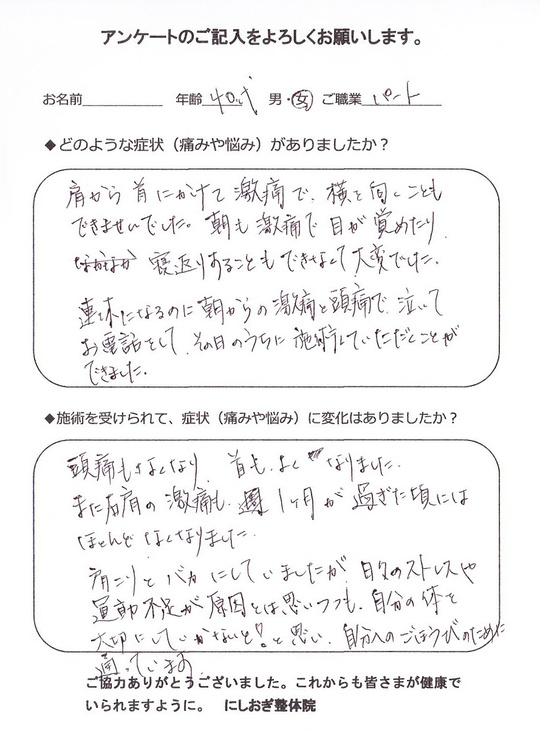 アンケートのご記入をよろしくお願いします。
お名前 年齢 40代 男・女 ご職業 パート
◆どのような症状（痛みや悩み）がありましたか？
肩から首にかけて激痛で、横を向くことも
できませんでした。朝も激痛で目が覚めたり
なかなか 寝返りすることもできなくて大変でした。
連休になるのに朝からの激痛と頭痛で、泣いて
お電話をして、その日のうちに施術していただくことが
できました。
◆施術を受けられて、症状（痛みや悩み）に変化はありましたか？
頭痛もなくなり、首も、よく なりました。
また右肩の激痛も、週1ヶ月が過ぎた頃には
ほとんどなくなりました。
肩こりとバカにしていましたが、日々のストレスや
運動不足が原因とは思いつつも、自分の体を
大切にしていかないと!と思い、自分へのごほうびのために
通っています。
ご協力ありがとうございました。これからも皆さまが健康で
いられますように。 にしおぎ整体院